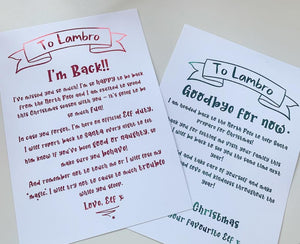 To Lambro
I'm Back!!
I've missed you so much! I'm so happy to be back
from the North Pole and I am excited to spend
this Christmas season with you - it's going to be
so much fun!
In case you forgot, I'm here on official Elf duty.
I will report back to Santa every night to let
him know if you've been good or naughty, so
make sure you behave!
And remember not to touch me or I will lose my
'magic'. I will try not to cause to much trouble
while you sleep.
Love, Elf x
To Lambro
Goodbye for now
I am headed back to the North Pole to help Santa
prepare for Christmas!
you for letting me visit your family this
I will be back to see you the same time next
year!
and take care of yourself and make
read love and kindness throughout the
year!
Christmas
your Favourite Elf x